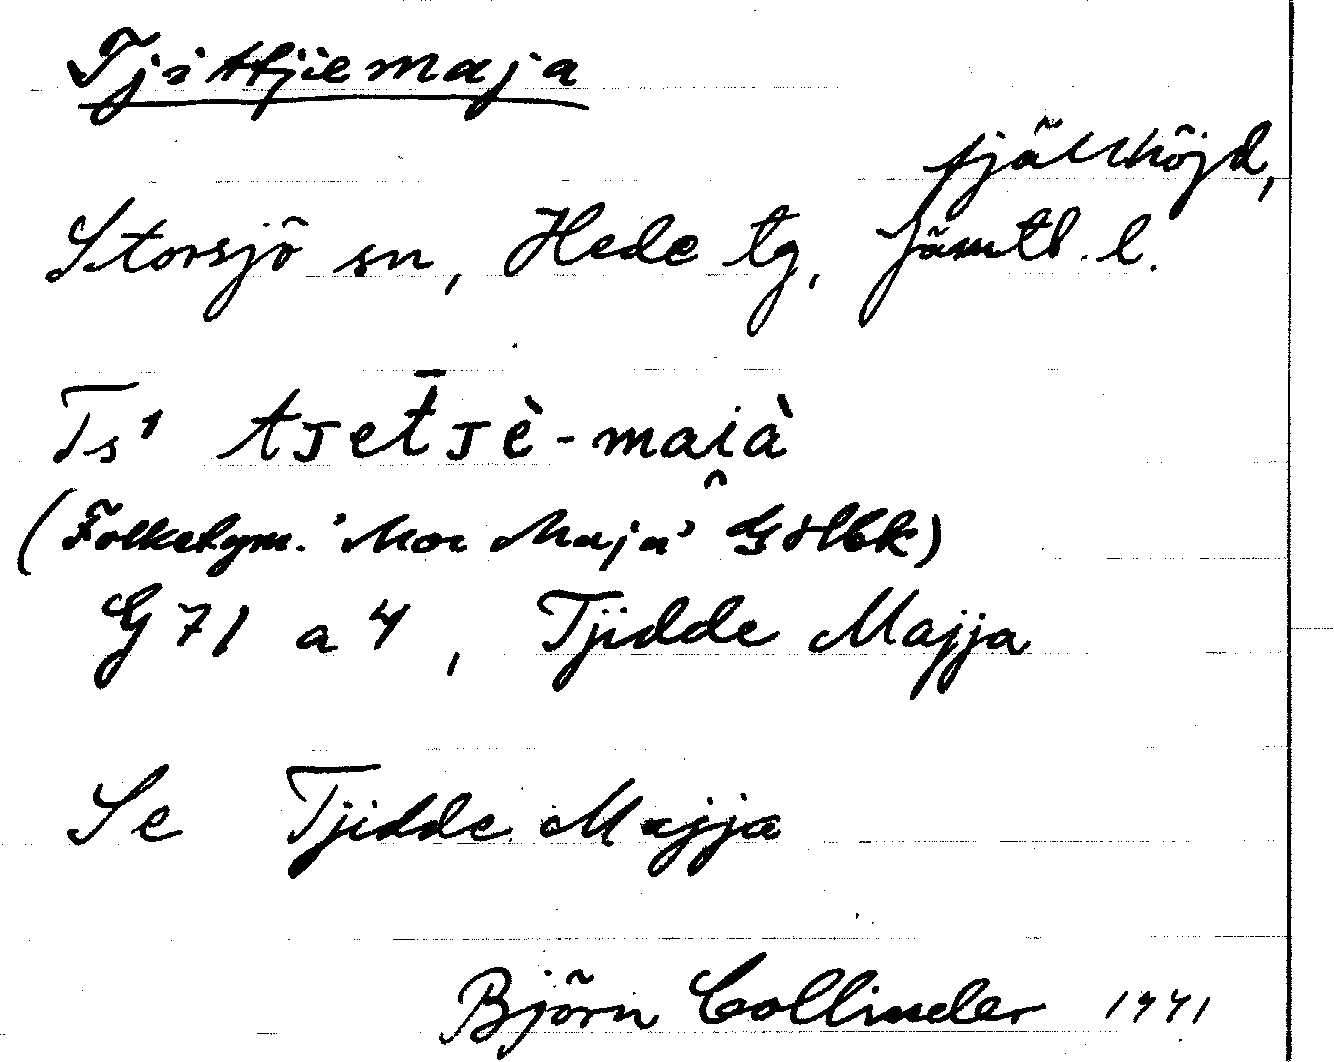 Tjittjiemaja
fjällhöjd,
Storsjö sn, Hede tg, Jämtl. l.
Ts¹ tjet̄jè-mai̯à
(Folketym. 'Mor Maja' GHbk)
G 71 a 4, Tjidde Majja
Se Tjidde Majja
Björn Collinder 1941